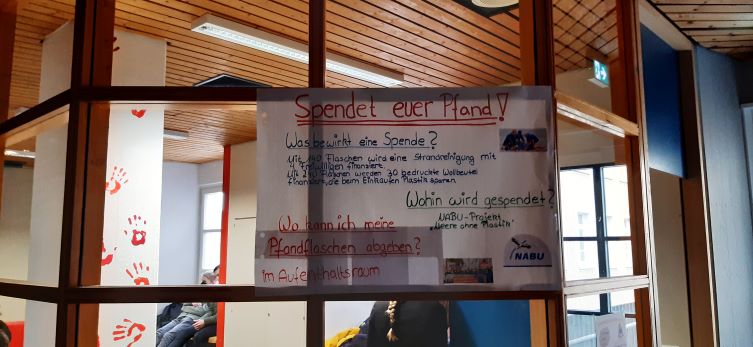 Spendet euer Pfand!
Was bewirkt eine Spende?
Mit 140 Flaschen wird eine Strandreinigung mit
4 Freiwilligen finanziert.
Mit 240 Flaschen werden 30 bedruckte Wollbeutel
finanziert, die beim Einkaufen Plastik sparen
Wohin wird gespendet?
NABU-Projekt
„Meere ohne Plastik"
Wo kann ich meine
Pfandflaschen abgeben?
im Aufenthaltsraum
NABU